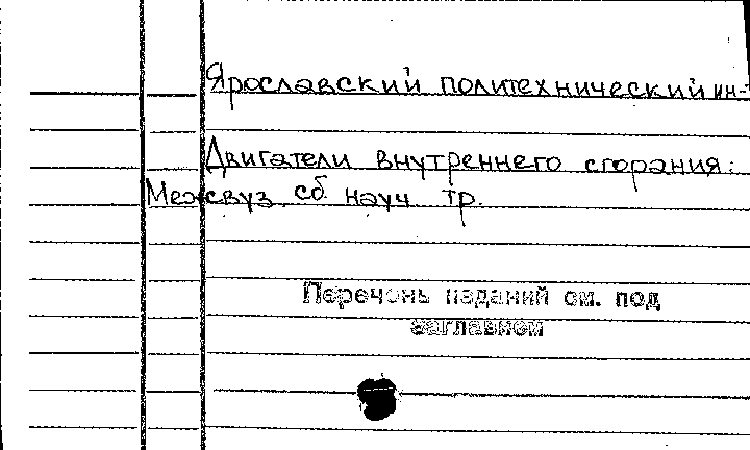 Ярославский политехнический ин-т
Двигатели внутреннего сгорания:
Межвуз. сб. науч. тр.
Перечень изданий см. под
заглавием